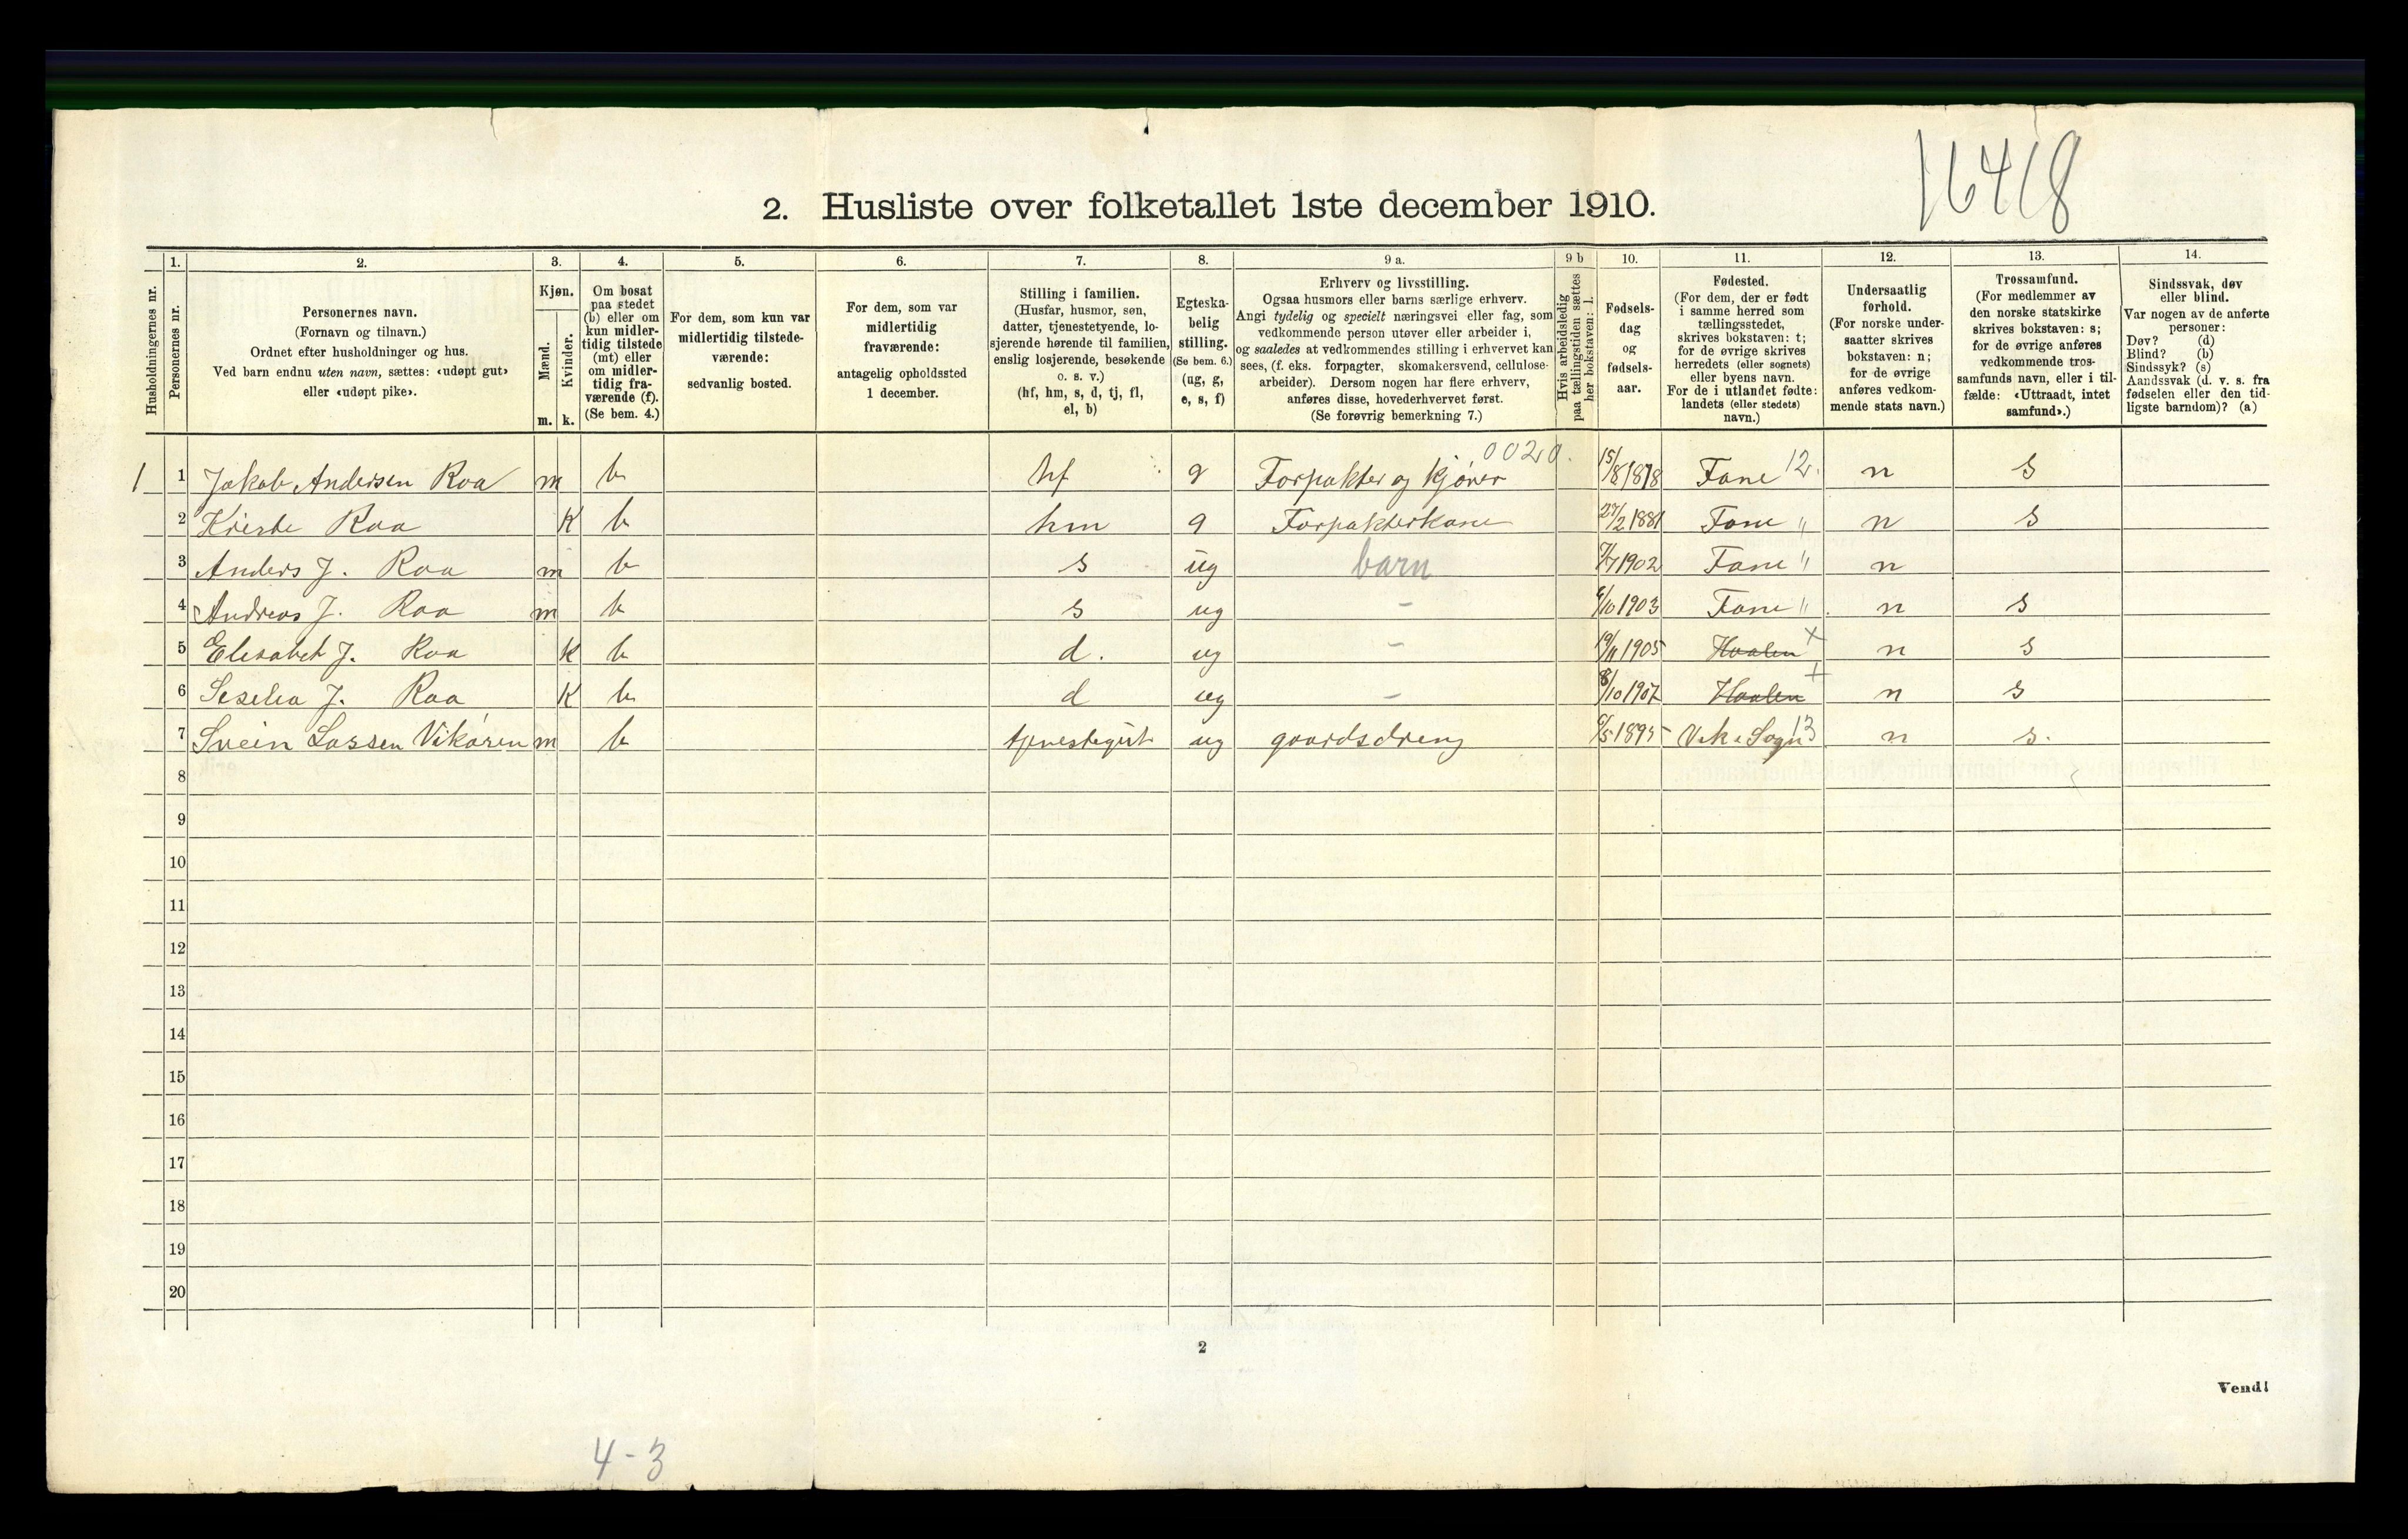 16418
2. Husliste over folketallet 1ste december 1910.
Husholdningernes nr.
1.
Personernes nr.
2.
Personernes navn.
(Fornavn og tilnavn.)
Ordnet efter husholdninger og hus.
Ved barn endnu uten navn, sættes: «udøpt gut»
eller «udøpt pike».
3.
Kjøn.
Mænd.
Kvinder.
m. k.
4.
Om bosat
paa stedet
(b) eller om
kun midler-
tidig tilstede
(mt) eller
om midler-
tidig fra-
værende (f).
(Se bem. 4.)
5.
For dem, som kun var
midlertidig tilstede-
værende:
sedvanlig bosted.
6.
For dem, som var
midlertidig
fraværende:
antagelig opholdssted
1 december.
7.
Stilling i familien.
(Husfar, husmor, søn,
datter, tjenestetyende, lo-
sjerende hørende til familien,
enslig losjerende, besøkende
o. s. v.)
(hf, hm, s, d, tj, fl,
el, b)
8.
Egteska-
belig
stilling.
(Se bem. 6.)
(ug, g,
e, s, f)
9 a.
Erhverv og livsstilling.
Ogsaa husmors eller barns særlige erhverv.
Angi tydelig og specielt næringsvei eller fag, som
vedkommende person utøver eller arbeider i,
og saaledes at vedkommendes stilling i erhvervet kan
sees, (f. eks. forpagter, skomakersvend, cellulose-
arbeider). Dersom nogen har flere erhverv,
anføres disse, hovederhvervet først.
(Se forøvrig bemerkning 7.)
9 b
Hvis arbeidsledig
paa tællingstiden sættes
her bokstaven: l.
10.
Fødsels-
dag
og
fødsels-
aar.
11.
Fødested.
(For dem, der er født
i samme herred som
tællingsstedet,
skrives bokstaven: t;
for de øvrige skrives
herredets (eller sognets)
eller byens navn.
For de i utlandet fødte:
landets (eller stedets)
navn.)
12.
Undersaatlig
forhold.
(For norske under-
saatter skrives
bokstaven: n;
for de øvrige
anføres vedkom-
mende stats navn.)
13.
Trossamfund.
(For medlemmer av
den norske statskirke
skrives bokstaven: s;
for de øvrige anføres
vedkommende tros-
samfunds navn, eller i til-
fælde: «Uttraadt, intet
samfund».)
14.
Sindssvak, døv
eller blind.
Var nogen av de anførte
personer:
Døv? (d)
Blind? (b)
Sindssyk? (s)
Aandssvak (d. v. s. fra
fødselen eller den tid-
ligste barndom)? (a)
0020.
1 1 Jakob Andersen Raa m b hf g Forpakter og kjører 15/8 1878 Fane 12. n s
2 Kirste Raa k b hm g Forpakterkone 27/2 1881 Fane " n s
3 Anders J. Raa m b s ug barn 7/7 1902 Fane " n
4 Andreas J. Raa m b s ug - 6/10 1903 Fane " n s
5 Elisabet J. Raa k b d. ug - 19/11 1905 Haalen x n s
6 Seselia J. Raa k b d ug - 8/10 1907 Haalen x n s
7 Svein Larsen Vikøren m b tjenestegut ug gaardsdreng 6/5 1895 Vik i Sogn 13 n s.
8
9
10
11
12
13
14
15
16
17
18
19
20
2
Vend!
4-3